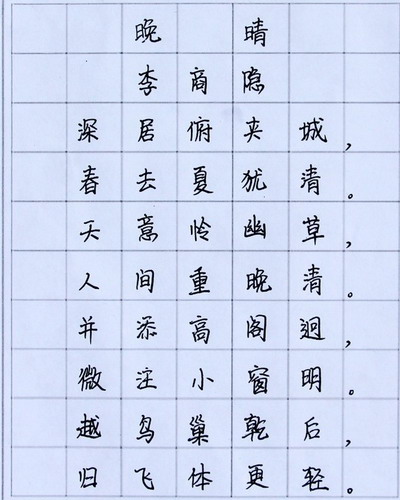 晚晴
李商隐
深居俯夹城,
春去夏犹清。
天意怜幽草,
人间重晚清。
并添高阁迥,
微注小窗明。
越鸟巢乾后,
归飞体更轻。